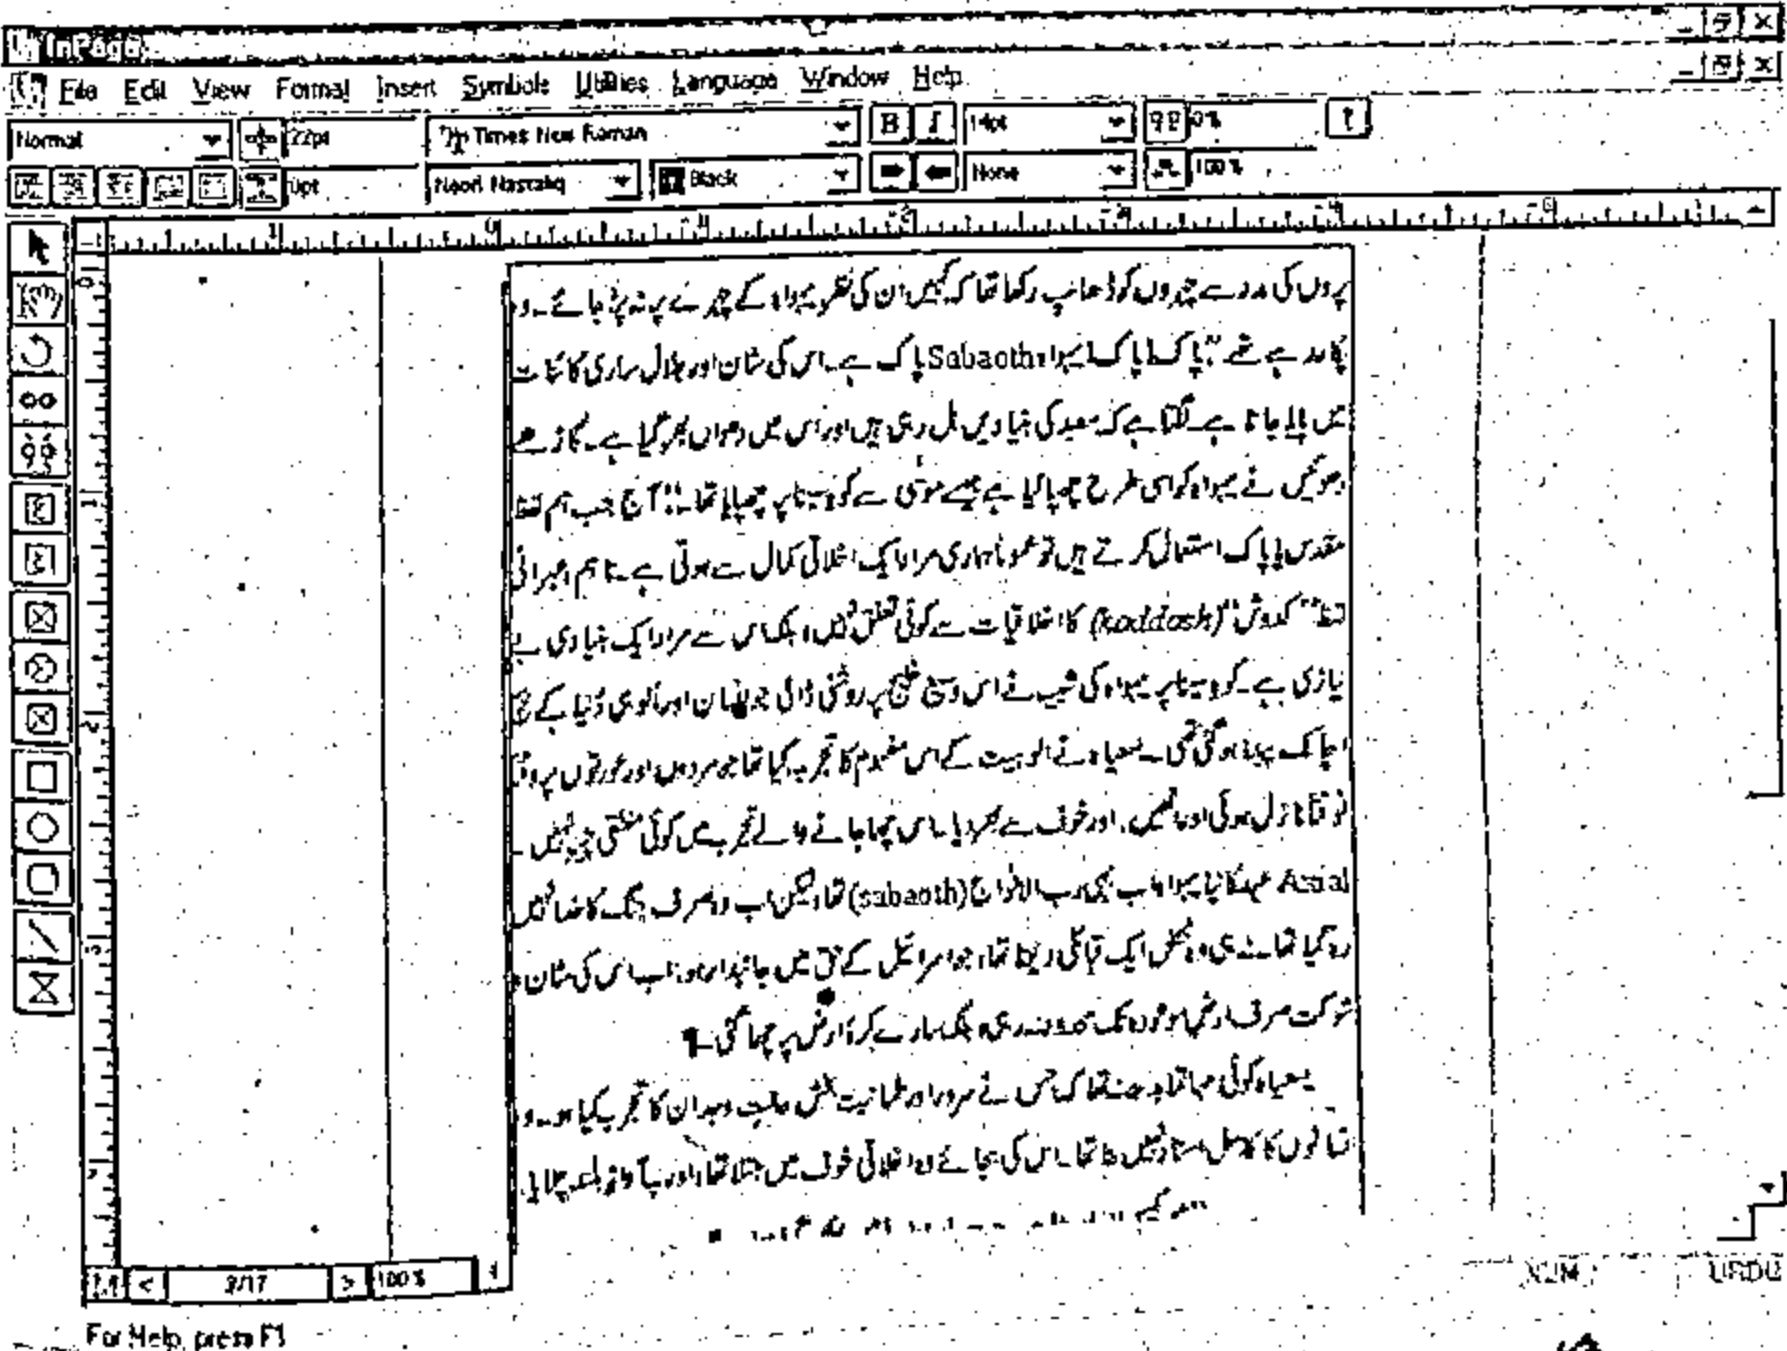 InPage
File Edit View Format Insert Symbols Utilities Language Window Help
Normal 22pt Times New Roman B I 14pt 0%
0pt Noori Nastaliq Black None 100%
پروں کی مدد سے چہروں کو ڈھانپ رکھا تھا کہ کہیں ان کی نظر یہواہ کے چہرے پر نہ پڑ جائے۔ وہ
پکار رہے تھے "پاک! پاک! یہواہ Sabaoth پاک ہے۔ اس کی شان اور جلال ساری کائنات
میں پایا جاتا ہے۔ لگتا ہے کہ معبد کی بنیادیں ہل رہی ہیں اور اس میں دھواں بھر گیا ہے۔ گاڑھے
دھوئیں نے یہواہ کو اسی طرح چھپا لیا ہے جیسے موسیٰ سے کوہ سینا پر چھپایا تھا۔" آج جب ہم لفظ
مقدس یا پاک استعمال کرتے ہیں تو عموماً ہماری مراد ایک اخلاقی کمال سے ہوتی ہے۔ تاہم عبرانی
لفظ "کدوش" (kaddosh) کا اخلاقیات سے کوئی تعلق نہیں، بلکہ اس سے مراد ایک بنیادی بے
نیازی ہے۔ کوہ سینا پر یہواہ کی شبیہ نے اس وسیع خلیج پر روشنی ڈالی جو انسان اور الوہی دُنیا کے بیچ
اچانک پیدا ہو گئی تھی۔ یسعیاہ نے الوہیت کے اس مفہوم کا تجربہ کیا تھا جو مردوں اور عورتوں پر وقتاً
فوقتاً نازل ہوئی اور انھیں اور خوف سے بھر دیا۔ اس چھا جانے والے تجربے میں کوئی منطقی چیز نہیں۔
Axial عہد کا نیا یہواہ اب بھی رب الافواج (sabaoth) تھا، لیکن اب وہ صرف جنگ کا خدا نہیں
رہ گیا تھا۔ نہ ہی وہ محض ایک قبائلی دیوتا تھا، جو اسرائیل کے حق میں جانبدار ہو: اب اس کی شان و
شوکت صرف ارض موعودہ تک محدود نہ رہی، بلکہ سارے کرۂ ارض پر چھا گئی۔
یسعیاہ کوئی مہاتما بدھ نہ تھا کہ جس نے سرور اور طمانیت بخش حالت وجدان کا تجربہ کیا ہو۔ وہ
انسانوں کا کامل استاد نہیں بنا تھا۔ اس کی بجائے وہ اخلاقی خوف میں مبتلا تھا، اور بآواز بلند چلایا
2/17 100%
NUM URDU
For Help, press F1